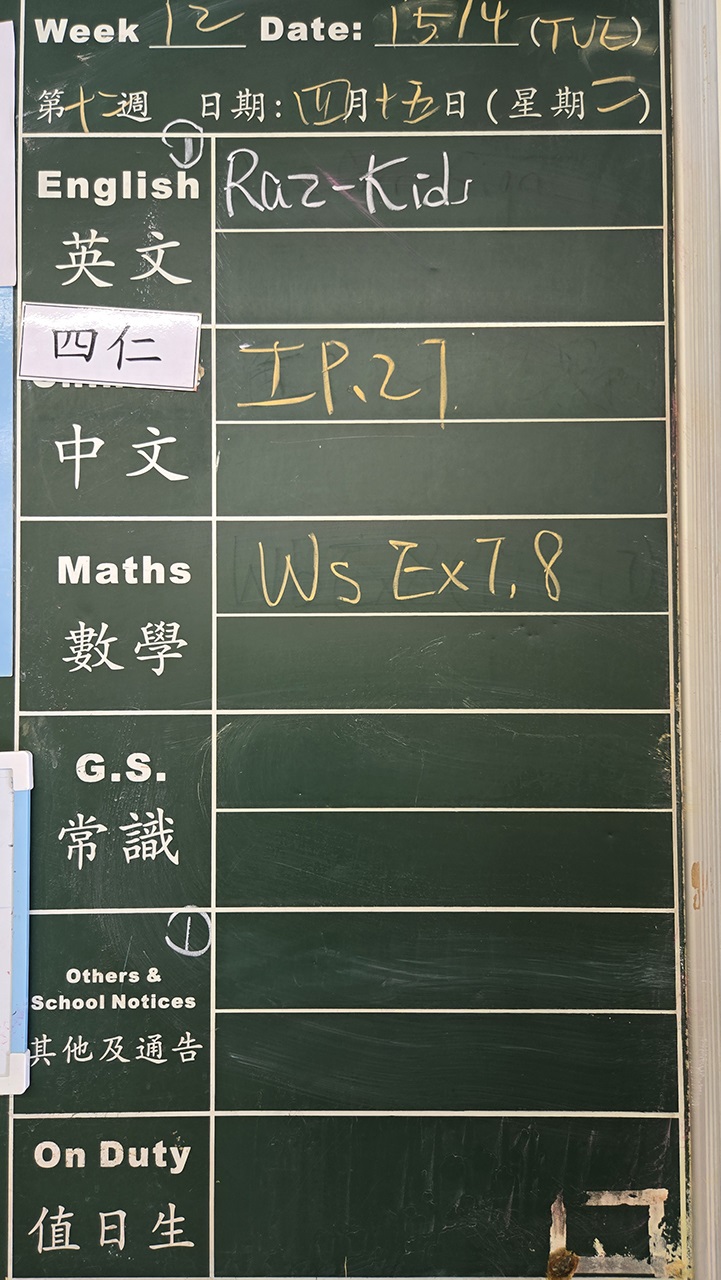 Week 12 Date: 15/4 (TUE)
第十二週 日期:四月十五日(星期二)
①
English Raz-Kids
英文
四仁
工P.27
中文
Maths Ws Ex7,8
數學
G.S.
常識
①
Others &
School Notices
其他及通告
On Duty
值日生